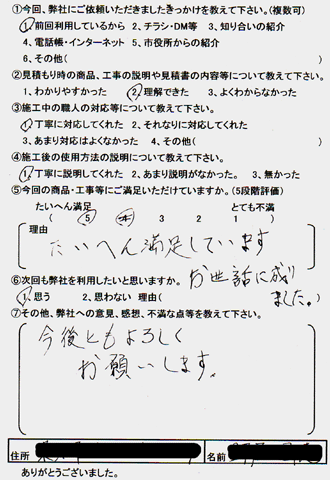 ①今回、弊社にご依頼いただきましたきっかけを教えて下さい。(複数可)
1、前回利用しているから 2、チラシ・DM等 3、知り合いの紹介
4、電話帳・インターネット 5、市役所からの紹介
6、その他( )
②見積もり時の商品、工事の説明や見積書の内容等について教えて下さい。
1、わかりやすかった 2、理解できた 3、よくわからなかった
③施工中の職人の対応等について教えて下さい。
1、丁寧に対応してくれた 2、それなりに対応してくれた
3、あまり対応はよくなかった 4、その他( )
④施工後の使用方法の説明について教えて下さい。
1、丁寧に説明してくれた 2、あまり説明がなかった。 3、無かった
⑤今回の商品・工事等にご満足いただけていますか。(5段階評価)
たいへん満足 とても不満
( 5 4 3 2 1 )
理由
たいへん満足しています
⑥次回も弊社を利用したいと思いますか。 お世話に成り
1、思う 2、思わない 理由( ました。)
⑦その他、弊社への意見、感想、不満な点等を教えて下さい。
今後ともよろしく
お願いします。
住所 名前
ありがとうございました。